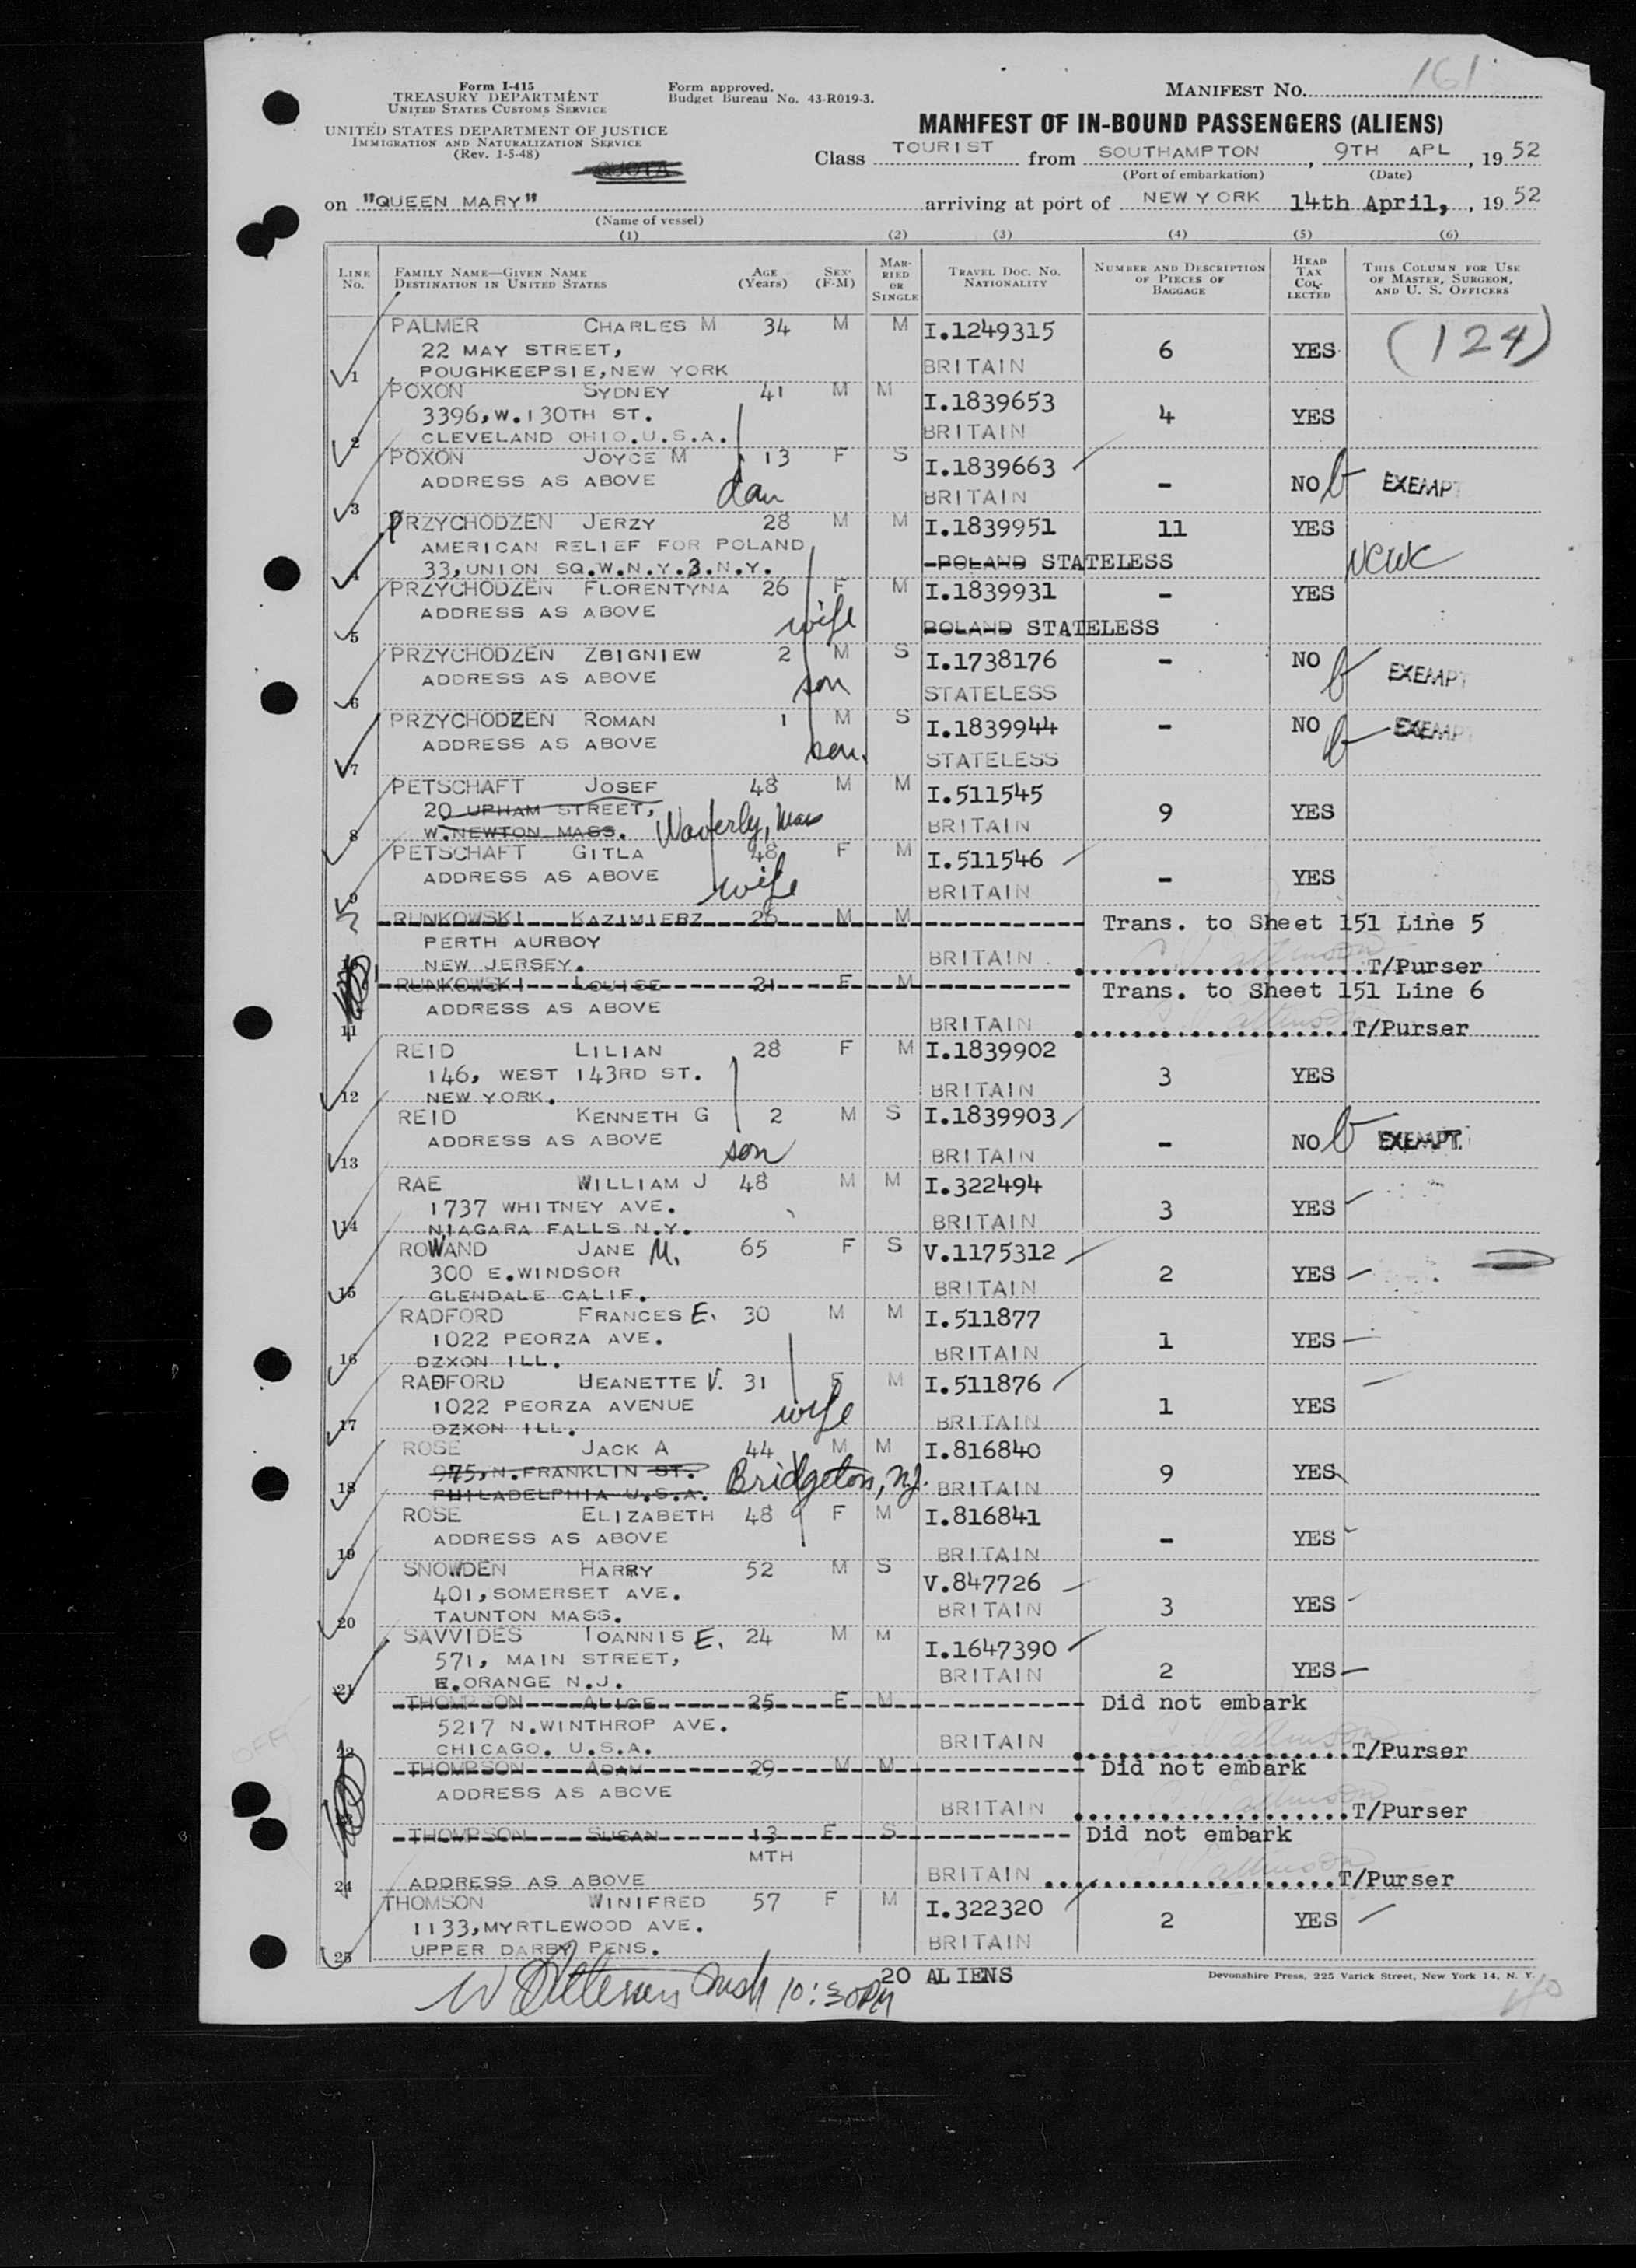 161
Form I-415
TREASURY DEPARTMENT
UNITED STATES CUSTOMS SERVICE
UNITED STATES DEPARTMENT OF JUSTICE
IMMIGRATION AND NATURALIZATION SERVICE
(Rev. 1-5-48)
Form approved.
Budget Bureau No. 43-R019-3.
MANIFEST NO.
MANIFEST OF IN-BOUND PASSENGERS (ALIENS)
Class TOURIST from SOUTHAMPTON, 9TH APL, 19 52
(Port of embarkation) (Date)
on "QUEEN MARY" arriving at port of NEW YORK 14th April, , 19 52
(Name of vessel)
(1) (2) (3) (4) (5) (6)
LINE NO. FAMILY NAME—GIVEN NAME DESTINATION IN UNITED STATES AGE (YEARS) SEX (F-M) MARRIED OR SINGLE TRAVEL DOC. NO. NATIONALITY NUMBER AND DESCRIPTION OF PIECES OF BAGGAGE HEAD TAX COLLECTED THIS COLUMN FOR USE OF MASTER, SURGEON, AND U. S. OFFICERS
PALMER CHARLES M 34 M M I.1249315 (124)
22 MAY STREET, 6 YES
1 POUGHKEEPSIE, NEW YORK BRITAIN
POXON SYDNEY 41 M M I.1839653
3396, W. 130TH ST. 4 YES
2 CLEVELAND OHIO. U.S.A. BRITAIN
POXON JOYCE M 13 F S I.1839663
ADDRESS AS ABOVE dau - NO EXEMPT
3 BRITAIN
PRZYCHODZEN JERZY 28 M M I.1839951 11 YES
AMERICAN RELIEF FOR POLAND
4 33, UNION SQ.W.N.Y.3.N.Y. POLAND STATELESS NCWC
PRZYCHODZEN FLORENTYNA 26 F M I.1839931 - YES
ADDRESS AS ABOVE wife
5 POLAND STATELESS
PRZYCHODZEN ZBIGNIEW 2 M S I.1738176 - NO EXEMPT
ADDRESS AS ABOVE son
6 STATELESS
PRZYCHODZEN ROMAN 1 M S I.1839944 - NO EXEMPT
ADDRESS AS ABOVE son.
7 STATELESS
PETSCHAFT JOSEF 48 M M I.511545
20 UPHAM STREET, 9 YES
8 W. NEWTON MASS. Waverly, Mass BRITAIN
PETSCHAFT GITLA 48 F M I.511546
ADDRESS AS ABOVE wife - YES
9 BRITAIN
RUNKOWSKI KAZIMIERZ 26 M M Trans. to Sheet 151 Line 5
PERTH AURBOY
10 NEW JERSEY. BRITAIN T/Purser
RUNKOWSKI LOUISE 21 F M Trans. to Sheet 151 Line 6
ADDRESS AS ABOVE
11 BRITAIN T/Purser
REID LILIAN 28 F M I.1839902
146, WEST 143RD ST. 3 YES
12 NEW YORK. BRITAIN
REID KENNETH G 2 M S I.1839903
ADDRESS AS ABOVE son - NO EXEMPT.
13 BRITAIN
RAE WILLIAM J 48 M M I.322494
1737 WHITNEY AVE. 3 YES
14 NIAGARA FALLS N.Y. BRITAIN
ROWAND JANE M. 65 F S V.1175312
300 E.WINDSOR 2 YES
15 GLENDALE CALIF. BRITAIN
RADFORD FRANCES E. 30 M M I.511877
1022 PEORZA AVE. 1 YES
16 DZXON ILL. BRITAIN
RADFORD HEANETTE V. 31 F M I.511876
1022 PEORZA AVENUE wife 1 YES
17 DZXON ILL. BRITAIN
ROSE JACK A 44 M M I.816840
975, N. FRANKLIN ST. 9 YES
18 PHILADELPHIA U.S.A. Bridgeton, NJ. BRITAIN
ROSE ELIZABETH 48 F M I.816841
ADDRESS AS ABOVE - YES
19 BRITAIN
SNOWDEN HARRY 52 M S V.847726
401, SOMERSET AVE. 3 YES
20 TAUNTON MASS. BRITAIN
SAVVIDES IOANNIS E. 24 M M I.1647390
571, MAIN STREET, 2 YES
21 E.ORANGE N.J. BRITAIN
THOMPSON ALICE 25 F M Did not embark
5217 N.WINTHROP AVE.
22 CHICAGO. U.S.A. BRITAIN T/Purser
THOMPSON ADAM 29 M M Did not embark
ADDRESS AS ABOVE
23 BRITAIN T/Purser
THOMPSON SUSAN 13 F S Did not embark
MTH
24 ADDRESS AS ABOVE BRITAIN T/Purser
THOMSON WINIFRED 57 F M I.322320
1133, MYRTLEWOOD AVE. 2 YES
25 UPPER DARBY PENS. BRITAIN
20 ALIENS
Devonshire Press, 225 Varick Street, New York 14, N. Y.
10:30PM